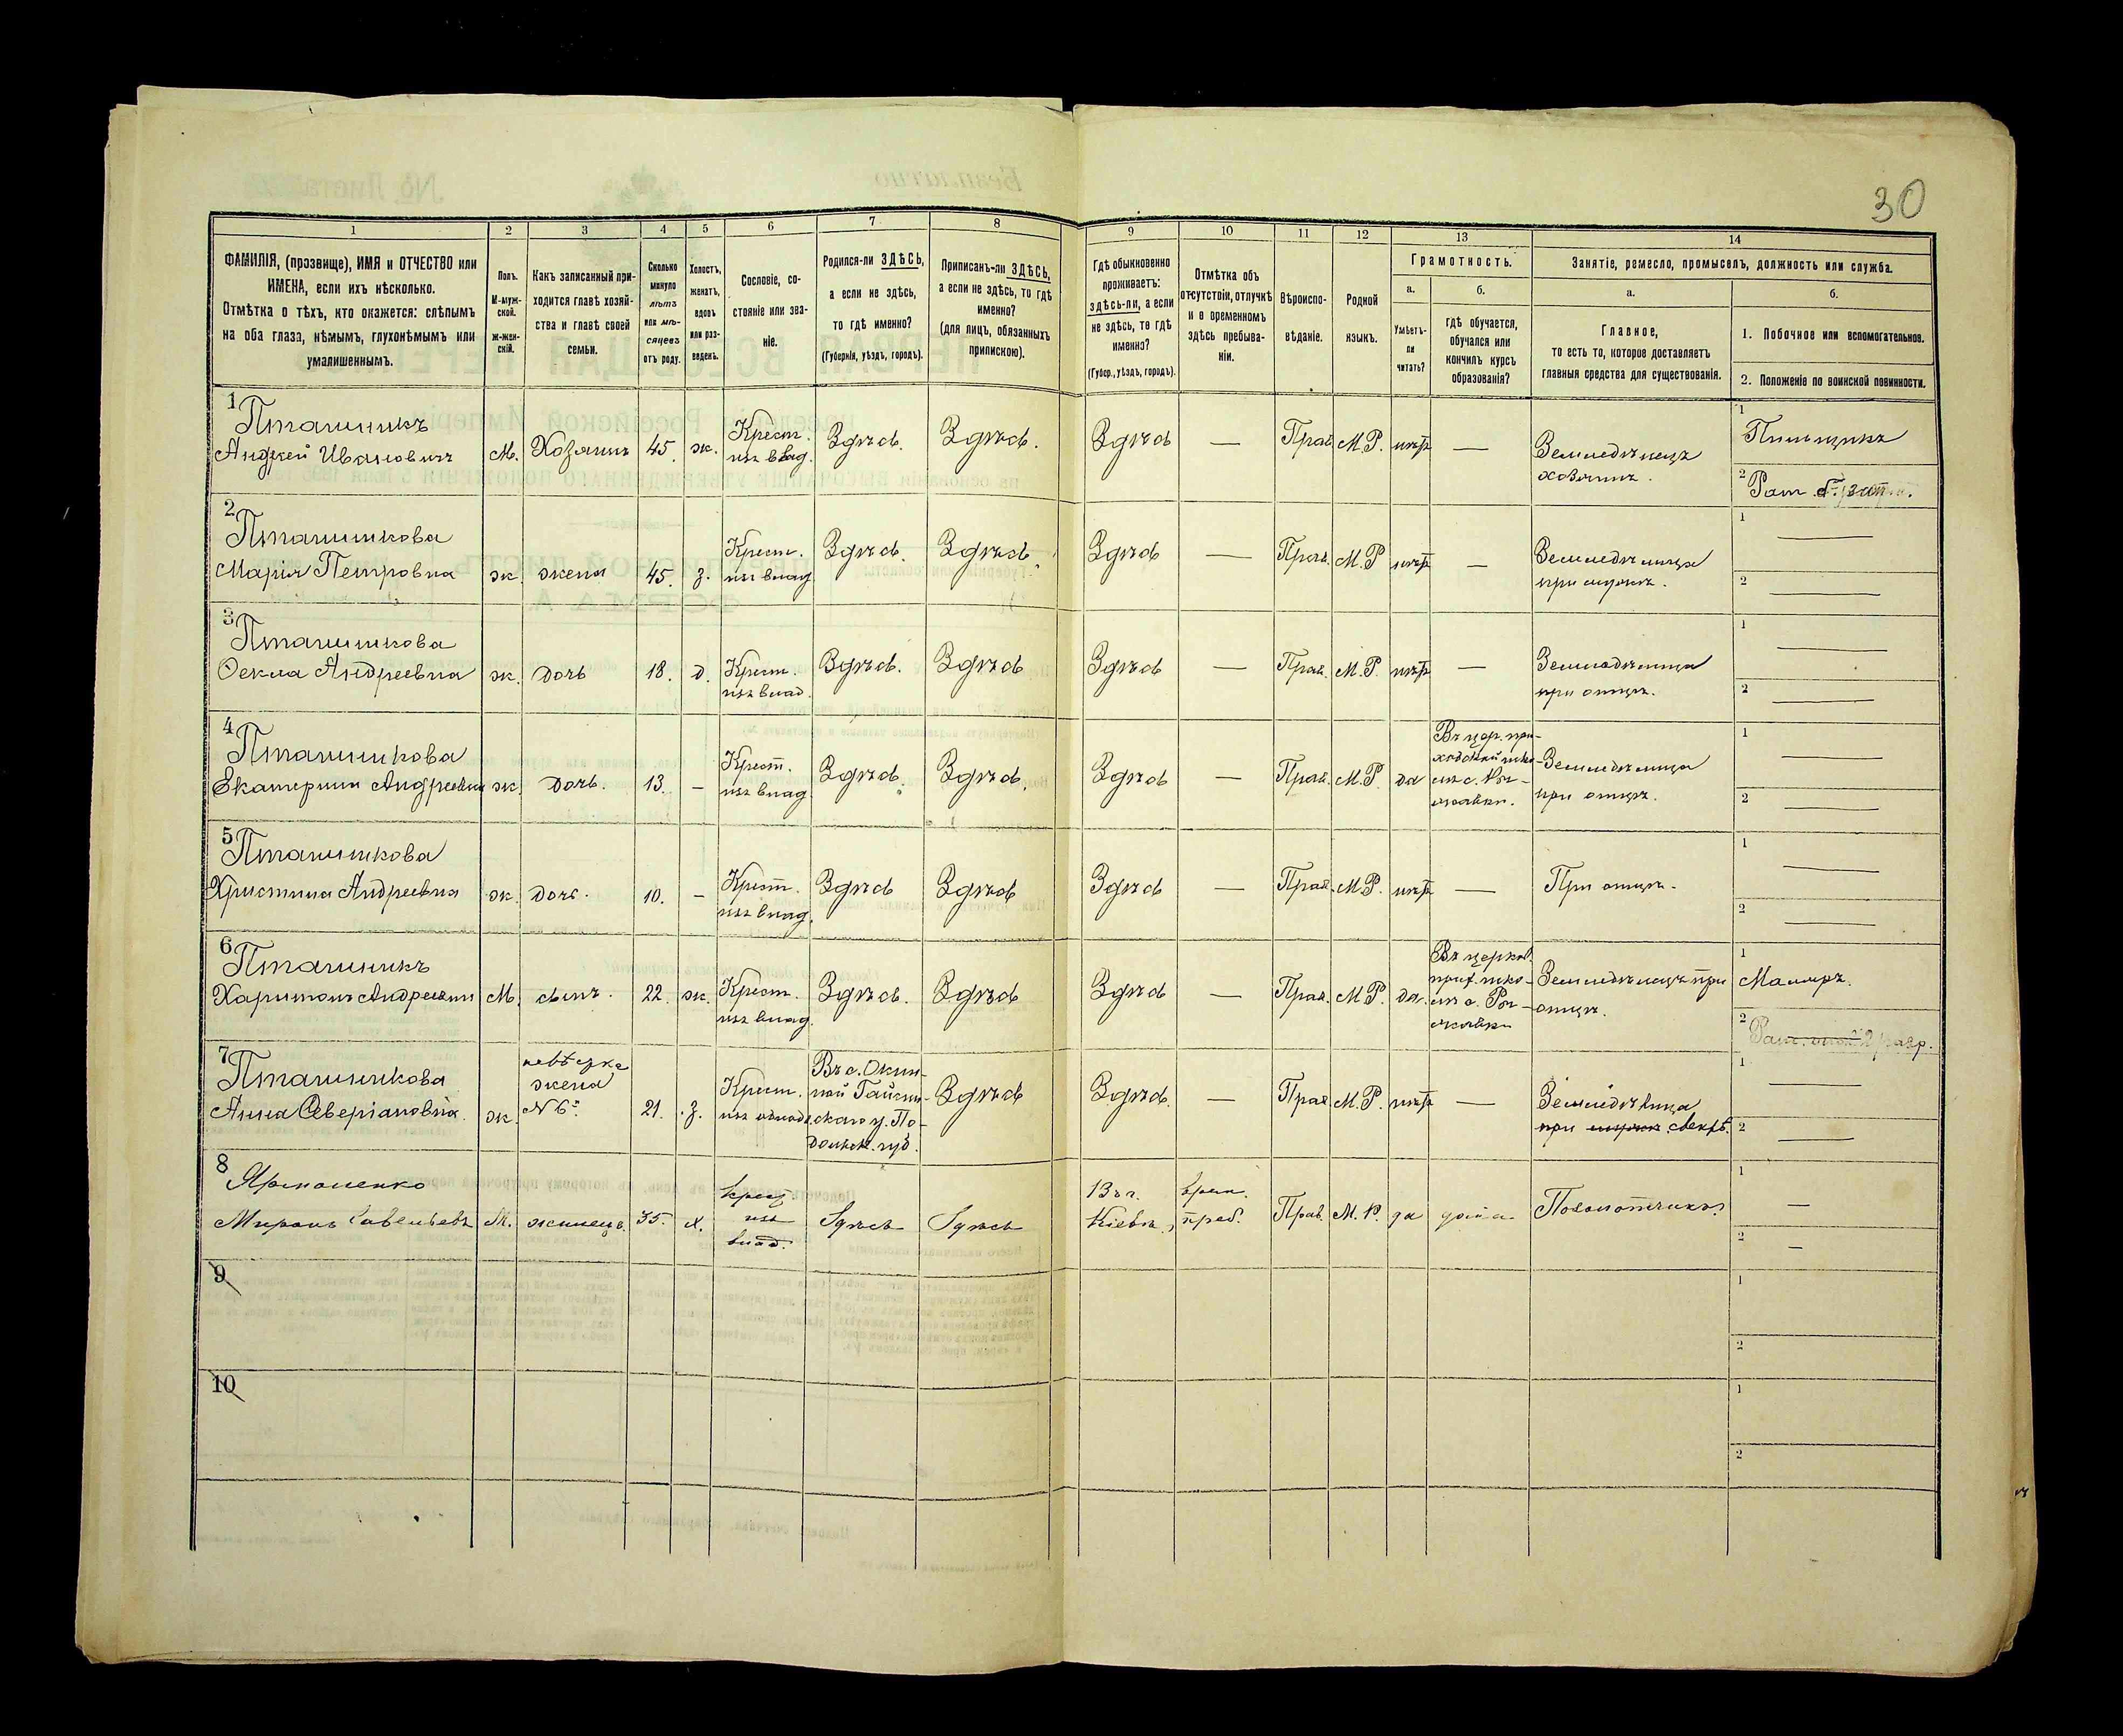 30
1 2 3 4 5 6 7 8 9 10 11 12 13 14
ФАМИЛІЯ, (прозвище), ИМЯ и ОТЧЕСТВО или
ИМЕНА, если ихъ нѣсколько.
Отмѣтка о тѣхъ, кто окажется: слѣпымъ
на оба глаза, нѣмымъ, глухонѣмымъ или
умалишеннымъ.
Полъ.
М-муж-
ской.
ж-жен-
скій.
Какъ записанный при-
ходится главѣ хозяй-
ства и главѣ своей
семьи.
Сколько
минуло
лѣтъ
или мѣ-
сяцевъ
отъ роду.
Холостъ,
женатъ,
вдовъ
или раз-
веденъ.
Сословіе, со-
стояніе или зва-
ніе.
Родился-ли ЗДѢСЬ,
а если не здѣсь,
то гдѣ именно?
(Губернія, уѣздъ, городъ).
Приписанъ-ли ЗДѢСЬ,
а если не здѣсь, то гдѣ
именно?
(для лицъ, обязанныхъ
припискою).
Гдѣ обыкновенно
проживаетъ:
здѣсь-ли, а если
не здѣсь, то гдѣ
именно?
(Губер., уѣздъ, городъ).
Отмѣтка объ
отсутствіи, отлучкѣ
и о временномъ
здѣсь пребыва-
ніи.
Вѣроиспо-
вѣданіе.
Родной
языкъ.
Грамотность.
а.
Умѣетъ-
ли
читать?
б.
гдѣ обучается,
обучался или
кончилъ курсъ
образованія?
Занятіе, ремесло, промыселъ, должность или служба.
а.
Главное,
то есть то, которое доставляетъ
главныя средства для существованія.
б.
1. Побочное или вспомогательное.
2. Положеніе по воинской повинности.
1
Пташникъ
Андрей Ивановичъ
М.
Хозяинъ
45.
ж.
Крест.
изъ влад.
Здѣсь.
Здѣсь.
Здѣсь
—
Прав.
М.Р.
нѣтъ
—
Земледѣлецъ
хозяинъ.
1
Пильщикъ
2
Рат.
2
Пташникова
Марія Петровна
ж.
жена
45.
з.
Крест.
изъ влад.
Здѣсь.
Здѣсь.
Здѣсь
—
Прав.
М.Р
нѣтъ
—
Земледѣлица
при мужѣ.
1 —
2 —
3
Пташникова
Ѳекла Андреевна
ж.
дочь
18.
д.
Крест.
изъ влад.
Здѣсь.
Здѣсь
Здѣсь
—
Прав.
М.Р.
нѣтъ
—
Земледѣлица
при отцѣ.
1 —
2 —
4
Пташникова
Екатерина Андреевна
ж.
дочь.
13.
—
Крест.
изъ влад.
Здѣсь.
Здѣсь.
Здѣсь
—
Прав.
М.Р
да
Въ цер. при-
ходской шко-
лѣ с.
Земледѣлица
при отцѣ.
1 —
2 —
5
Пташникова
Христина Андреевна
ж.
дочь.
10.
—
Крест.
изъ влад.
Здѣсь
Здѣсь
Здѣсь
—
Прав.
М.Р.
нѣтъ
—
При отцѣ.
1 —
2 —
6
Пташникъ
Харитонъ Андреевичъ
М.
сынъ.
22.
ж.
Крест.
изъ влад.
Здѣсь.
Здѣсь
Здѣсь
—
Прав.
М.Р.
да.
Въ церков.
прих. шко-
лѣ с.
Земледѣлецъ при
отцѣ.
1
Маляръ.
2
Рат. 2 разр.
7
Пташникова
Анна Северіановна.
ж.
невѣстка
жена
N 6го
21.
з.
Крест.
изъ влад.
Въ с. Окни-
ной Гайсин-
скаго у. По-
дольск. губ.
Здѣсь
Здѣсь.
—
Прав.
М.Р.
нѣтъ
—
Земледѣлица
при мужѣ. свекрѣ.
1 —
2 —
8
Яр
Миронъ Савельевъ
М.
жилецъ.
35.
х.
Крест.
изъ
влад.
Здѣсь
Здѣсь
Въ г.
Кіевѣ,
врем.
преб.
Прав.
М.Р.
да
дома
1 —
2 —
9
1
2
10
1
2